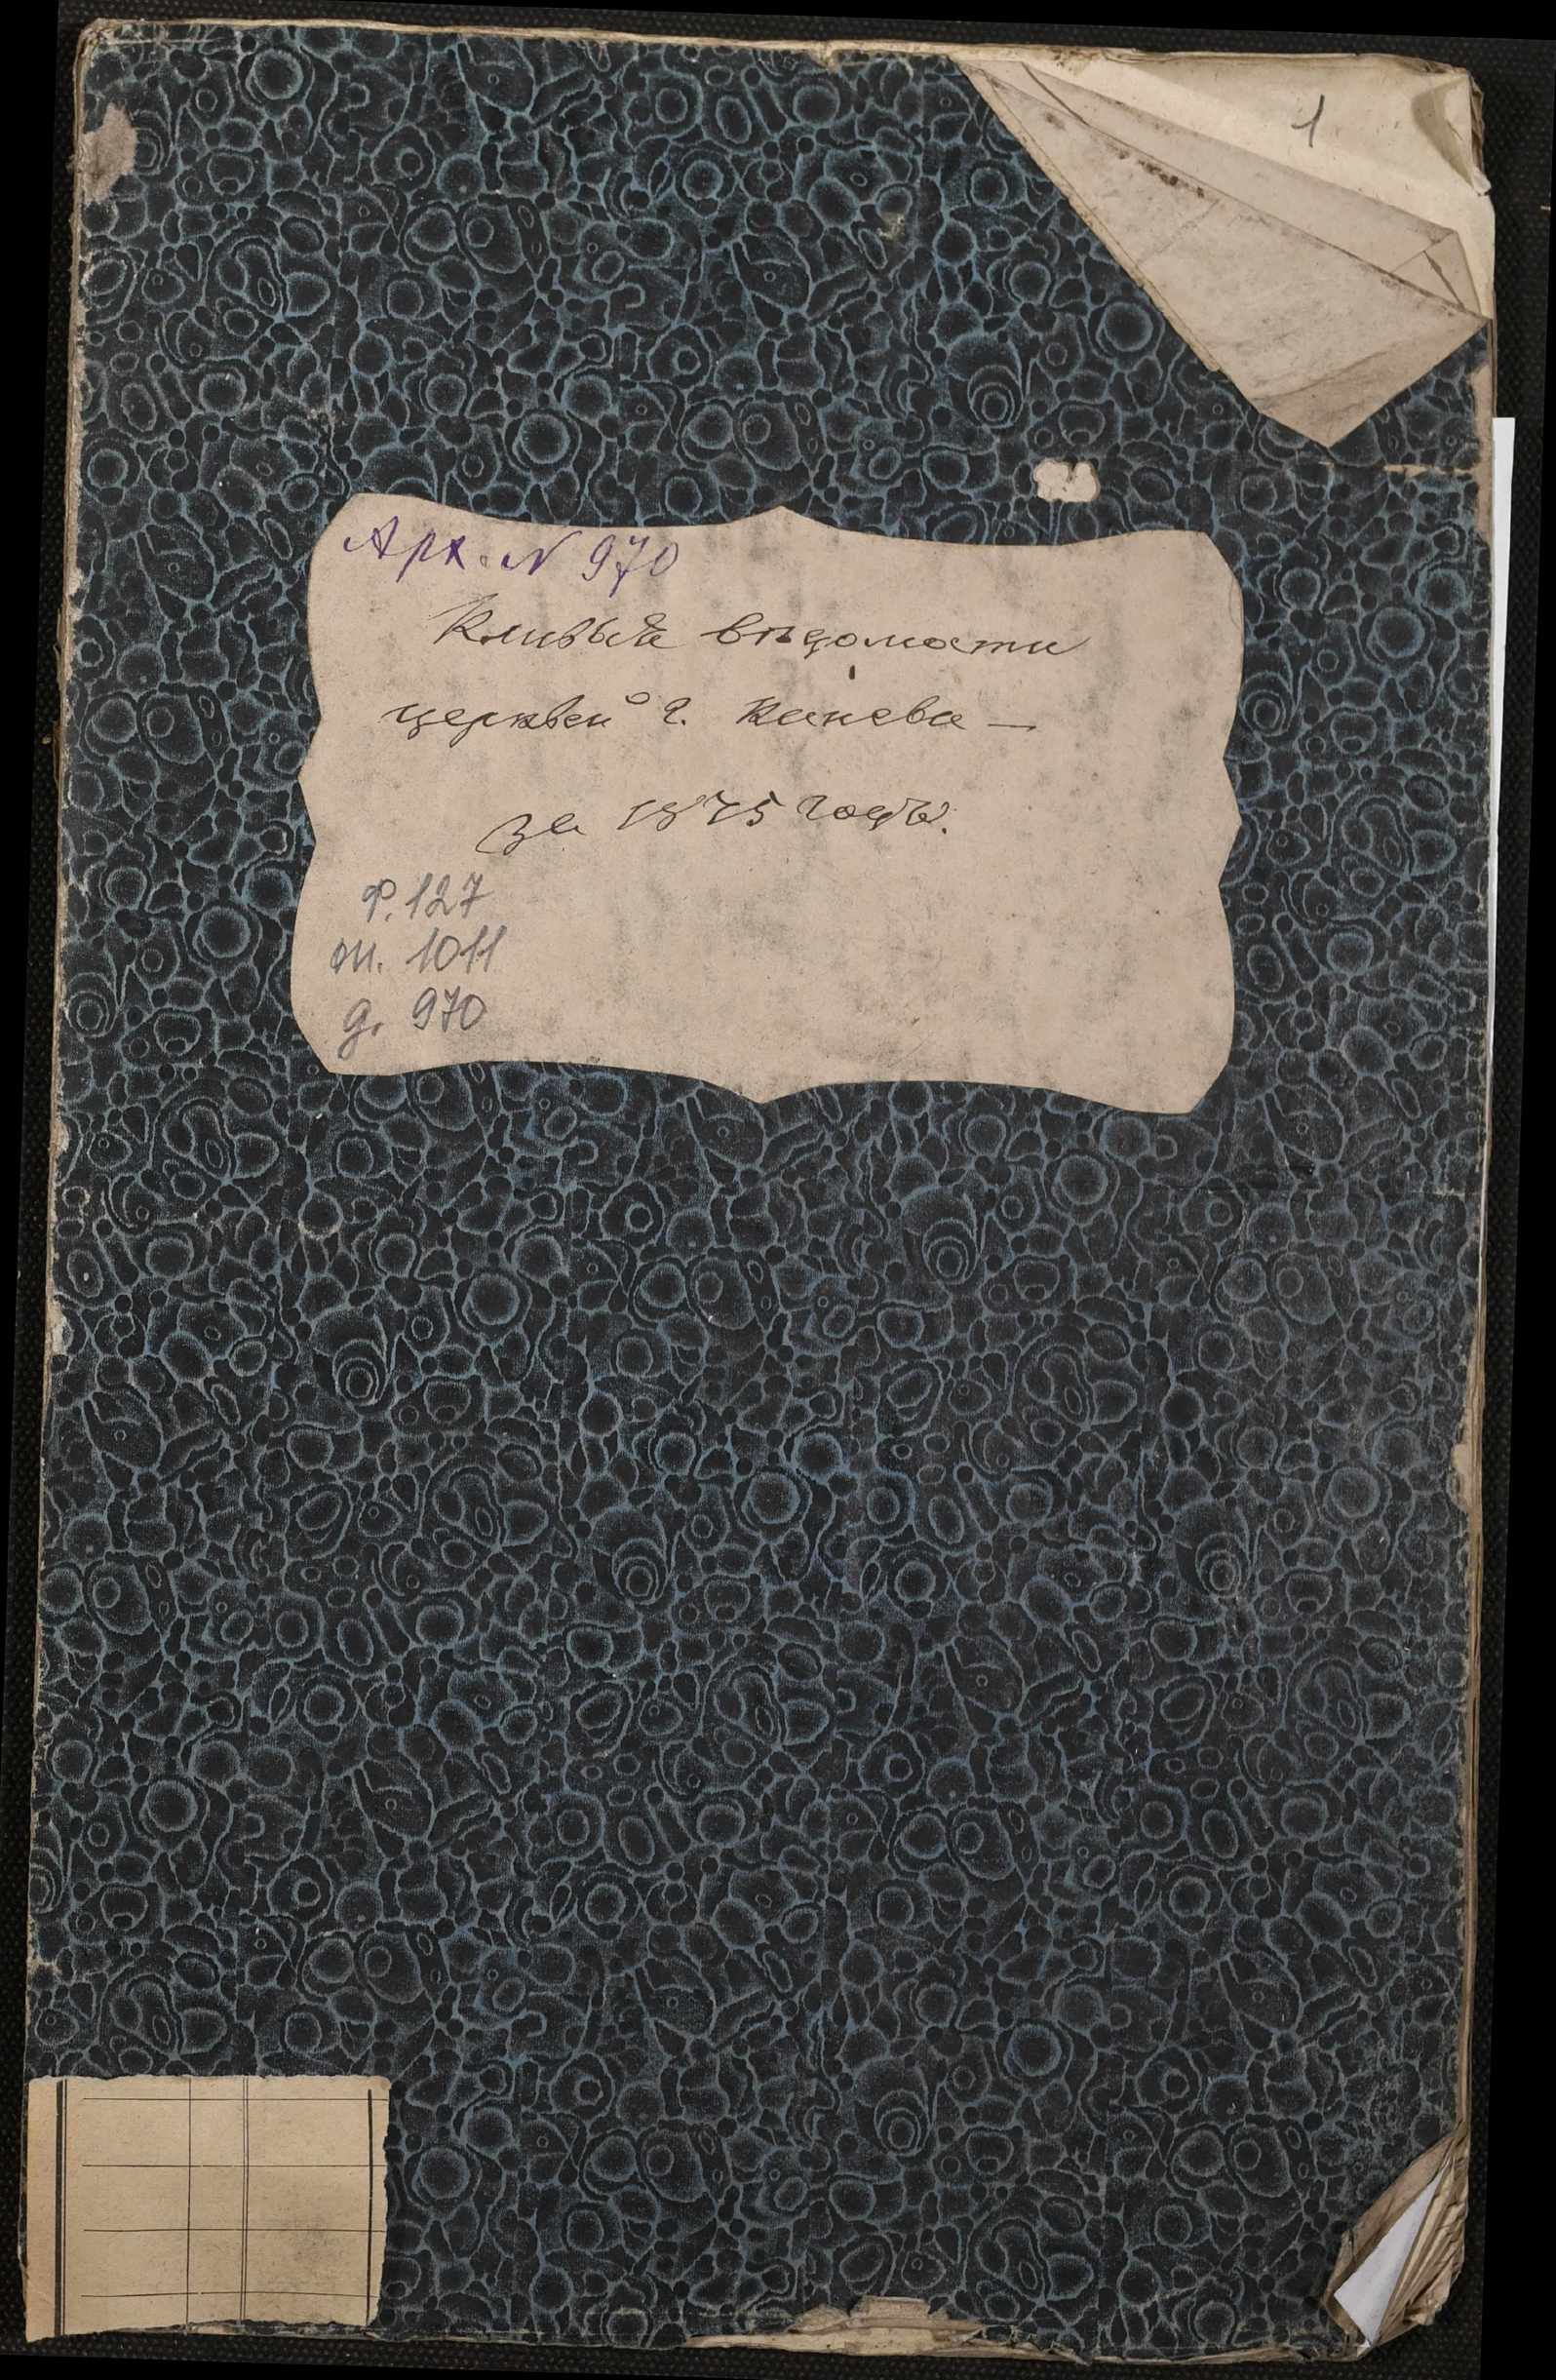 1
Арх. N 970
Клировыя вѣдомости
церквей г. Канева —
за 1875 годъ.
Ф. 127
оп. 1011
д. 970